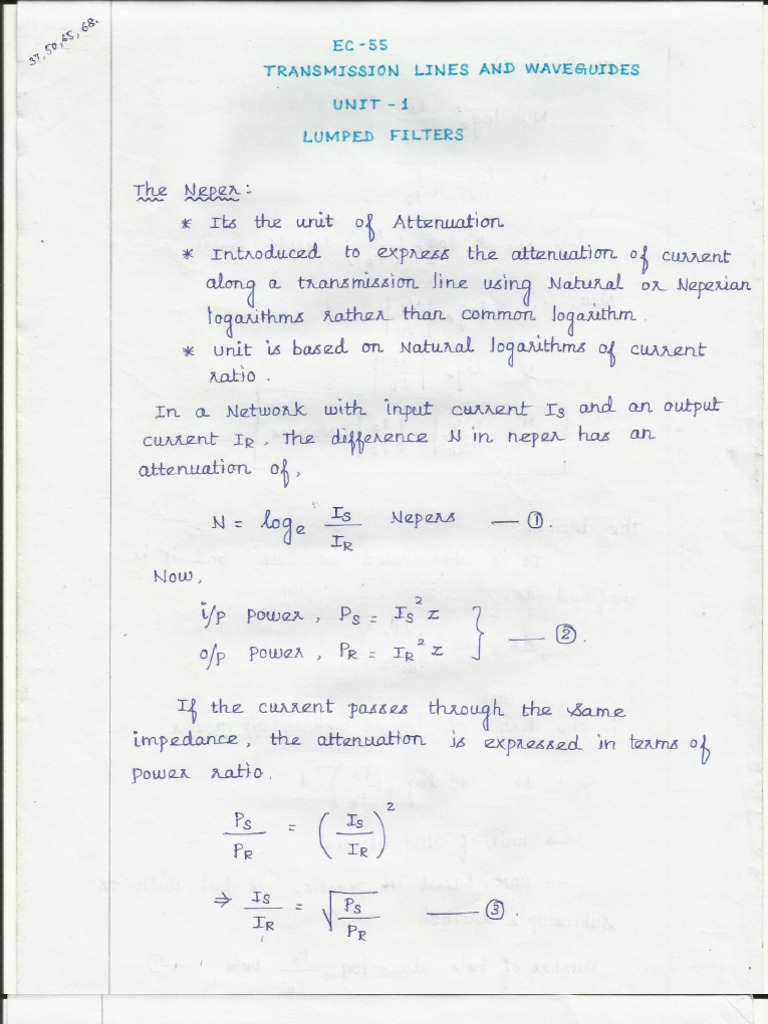 37, 50, 65, 68.
EC-55
TRANSMISSION LINES AND WAVEGUIDES
UNIT - 1
LUMPED FILTERS
The Neper:
* Its the unit of Attenuation
* Introduced to express the attenuation of current
along a transmission line using Natural or Neperian
logarithms rather than common logarithm.
* unit is based on Natural logarithms of current
ratio.
In a Network with input current IS and an output
current IR, The difference N in neper has an
attenuation of,
N = loge IS/IR Nepers — ①.
Now,
i/p power, PS = IS² Z
o/p power, PR = IR² Z } — ②.
If the current passes through the same
impedance, the attenuation is expressed in terms of
power ratio.
PS/PR = (IS/IR)²
⇒ IS/IR = √(PS/PR) — ③.